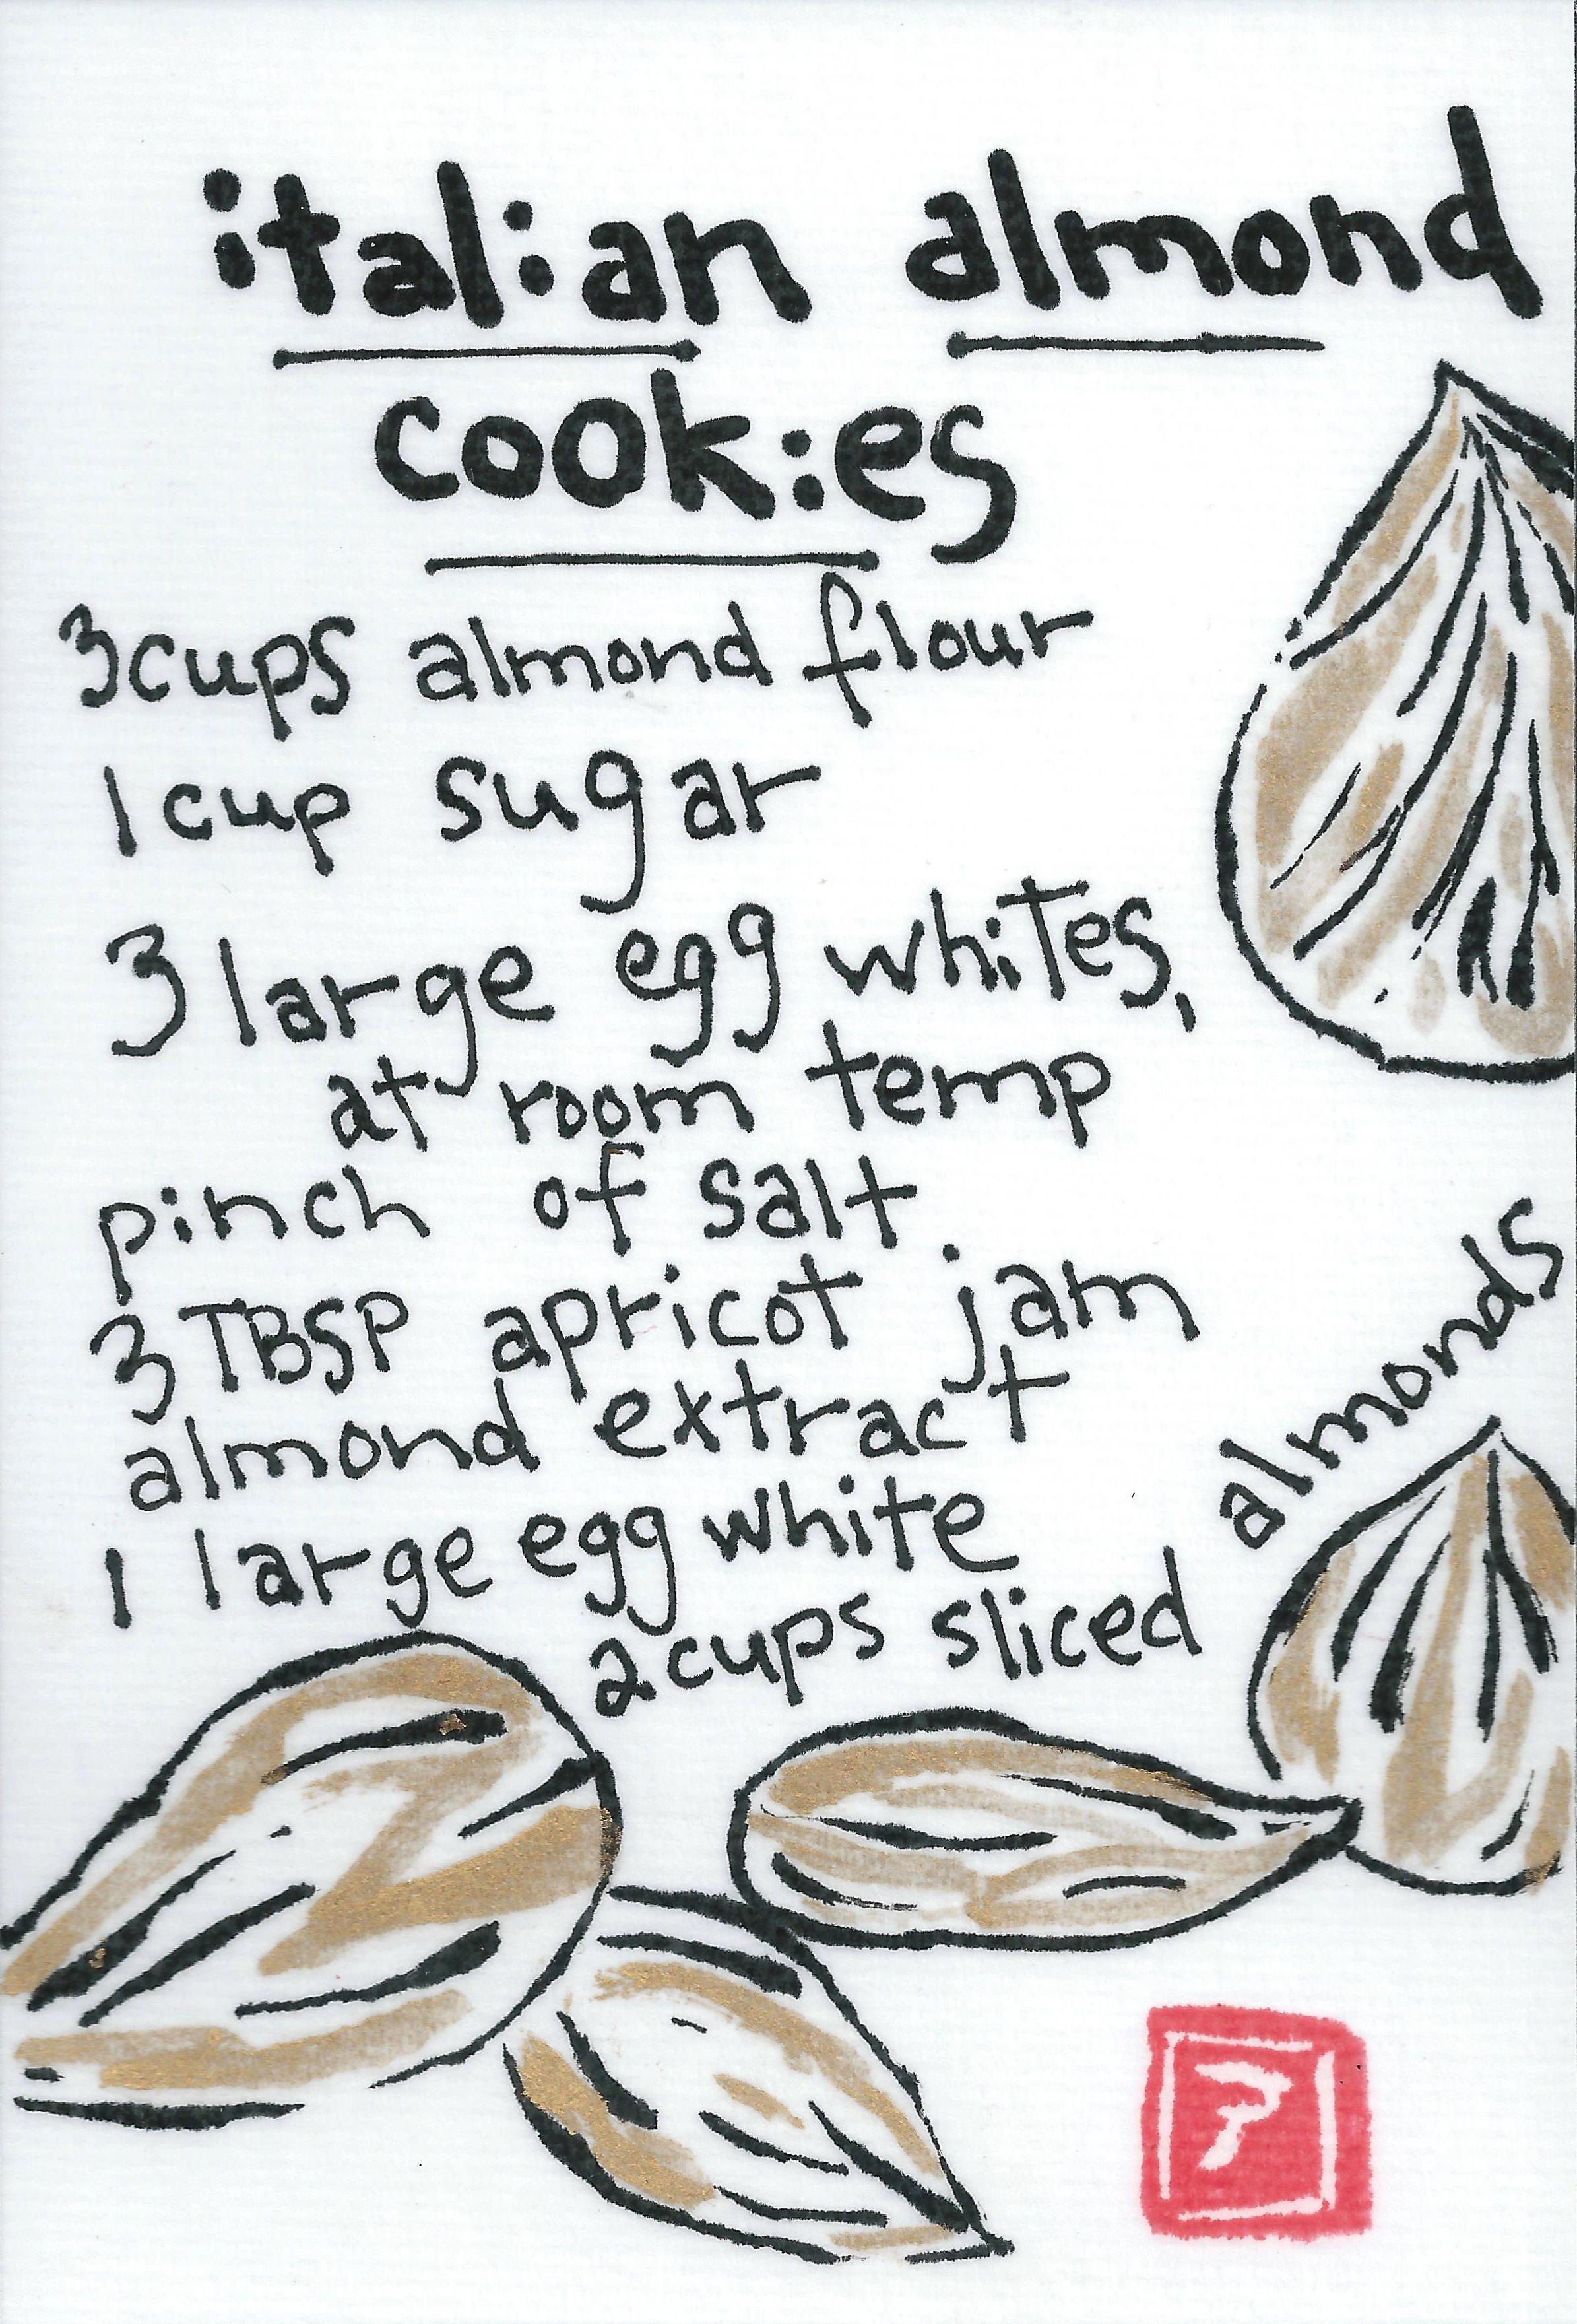 italian almond
cookies
3 cups almond flour
1 cup sugar
3 large egg whites,
at room temp
pinch of salt
3 TBSP apricot jam
almond extract
1 large egg white
2 cups sliced almonds
ア